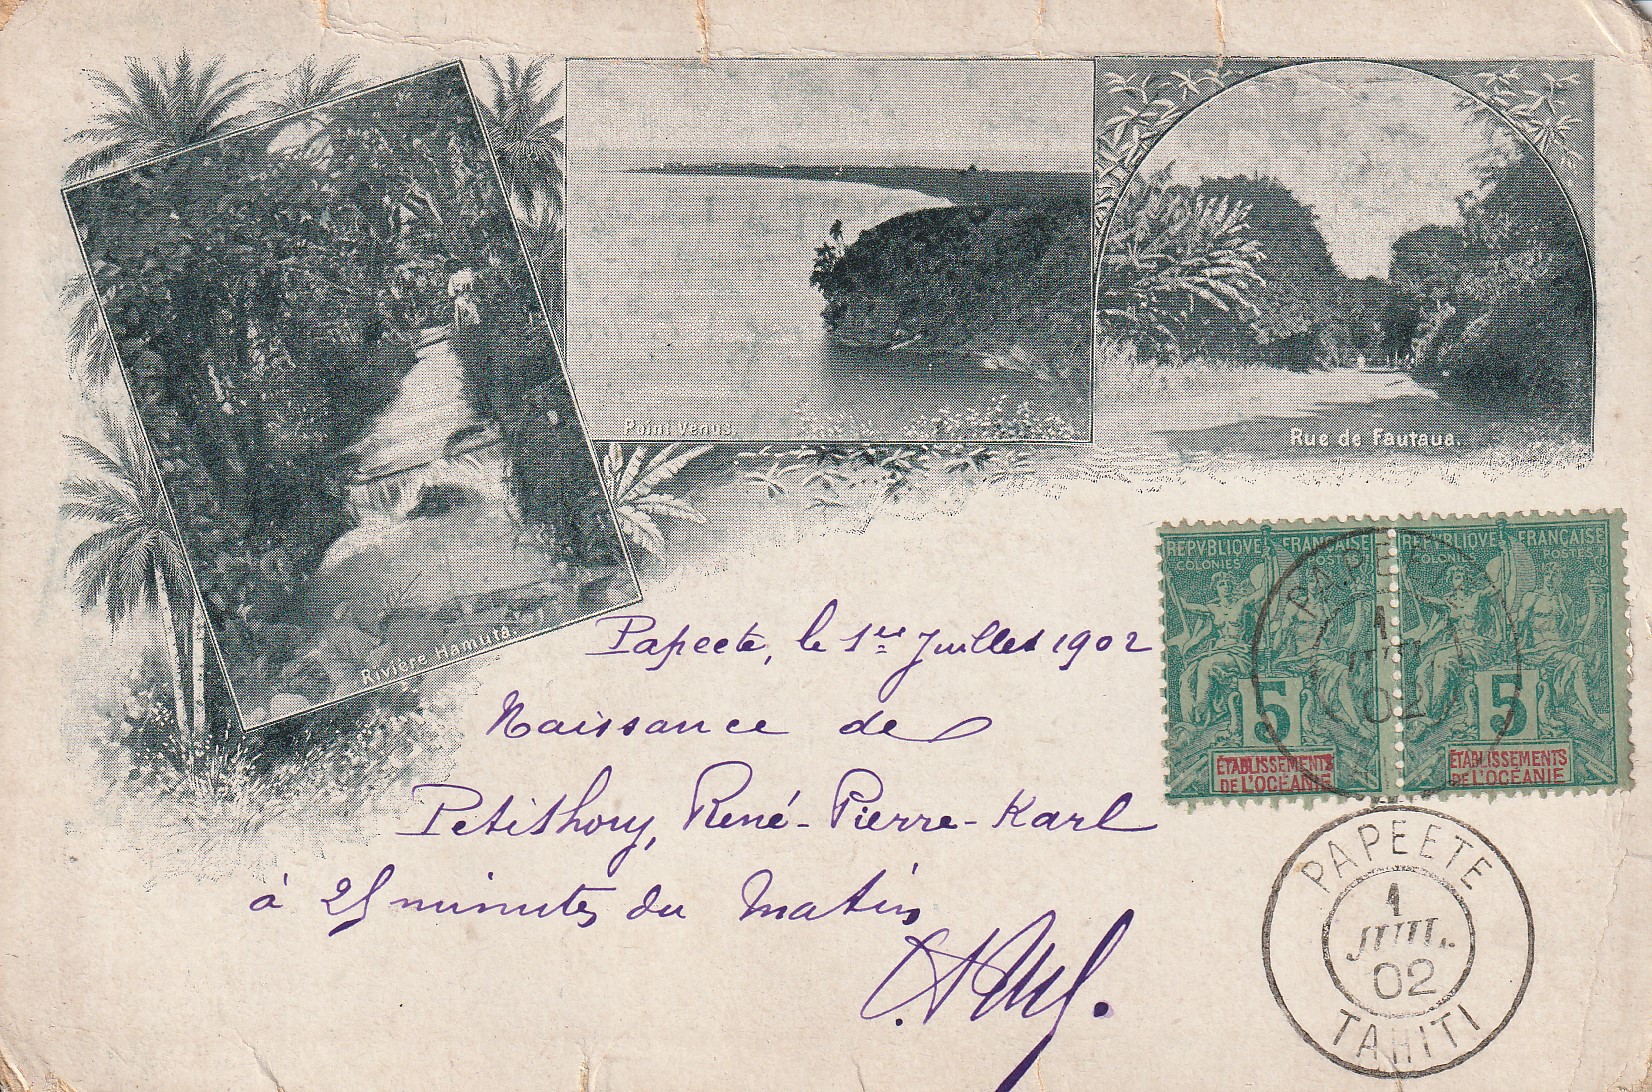 Rivière Hamuta.
Point Venus.
Rue de Fautaua.
REPVBLIQVE FRANÇAISE
COLONIES POSTES
5
ÉTABLISSEMENTS
DE L'OCÉANIE
REPVBLIQVE FRANÇAISE
COLONIES POSTES
5
ÉTABLISSEMENTS
DE L'OCÉANIE
PAPEETE
1
JUIL.
02
Papeete, le 1er Juillet 1902
Naissance de
Petithory, René-Pierre-Karl
à 25 minutes du Matin
PAPEETE
1
JUIL.
02
TAHITI